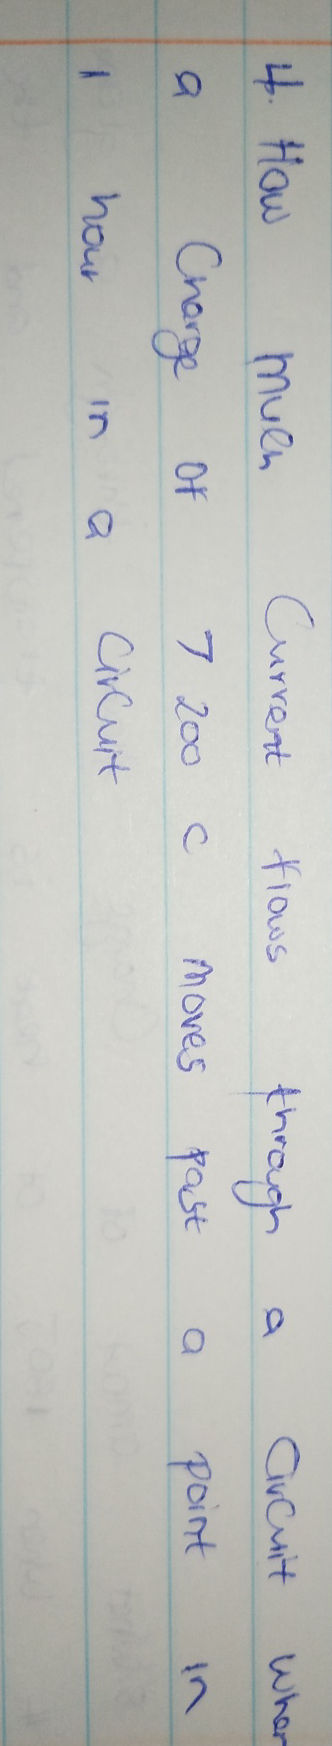 4. How much Current flows through a Circuit when
a Charge of 7 200 C moves past a point in
1 hour in a Circuit